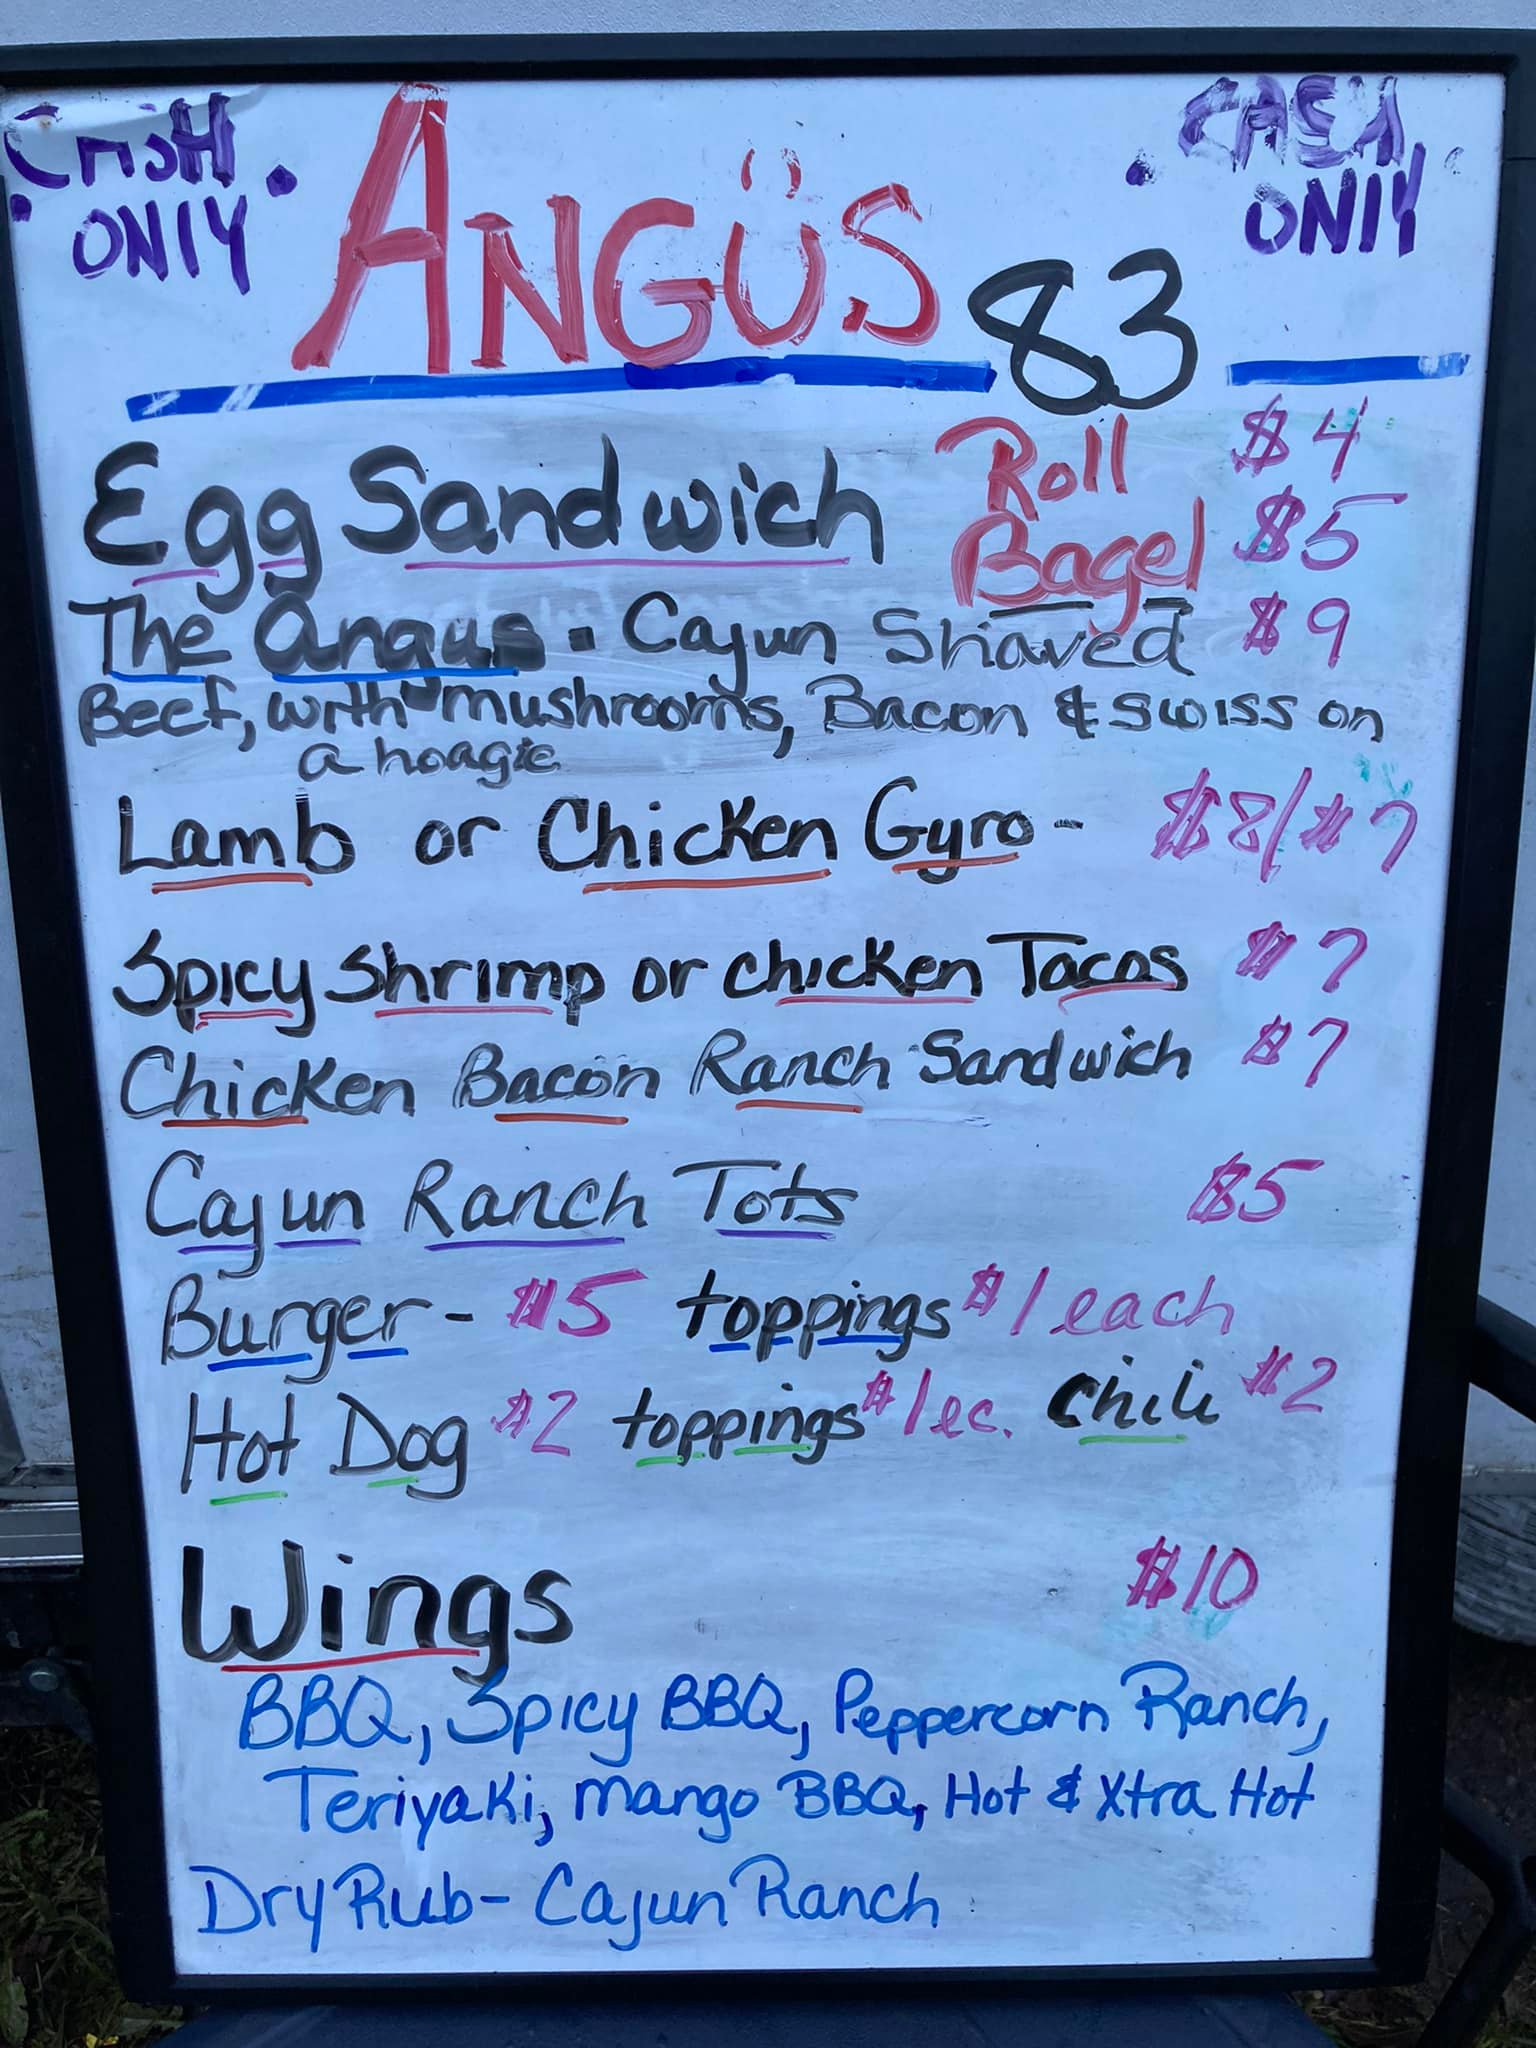 CASH ONLY
ANGÜS 83
CASH ONLY
Egg Sandwich Roll $4
Bagel $5
The Angus. Cajun Shaved $9
Beef, with mushrooms, Bacon & swiss on
a hoagie
Lamb or Chicken Gyro - $8/$7
Spicy Shrimp or chicken Tacos $7
Chicken Bacon Ranch Sandwich $7
Cajun Ranch Tots $5
Burger - $5 toppings $1 each
Hot Dog $2 toppings $1 ec. chili $2
Wings $10
BBQ, Spicy BBQ, Peppercorn Ranch,
Teriyaki, mango BBQ, Hot & Xtra Hot
Dry Rub - Cajun Ranch